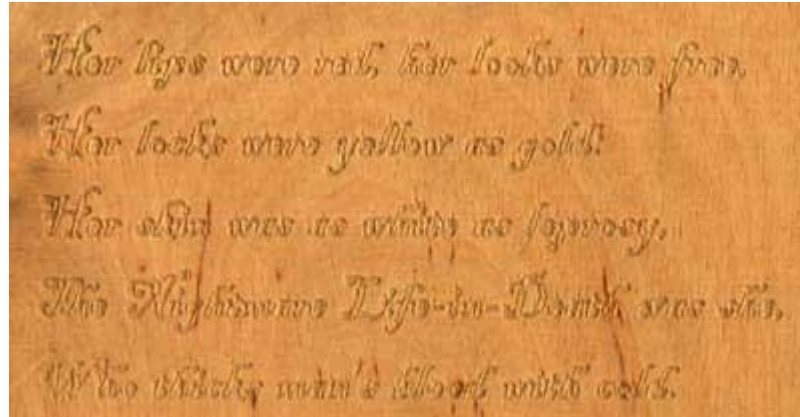 Her lips were red, her looks were free,
Her locks were yellow as gold:
Her skin was as white as leprosy,
The Nightmare Life-in-Death was she,
Who thicks man's blood with cold.